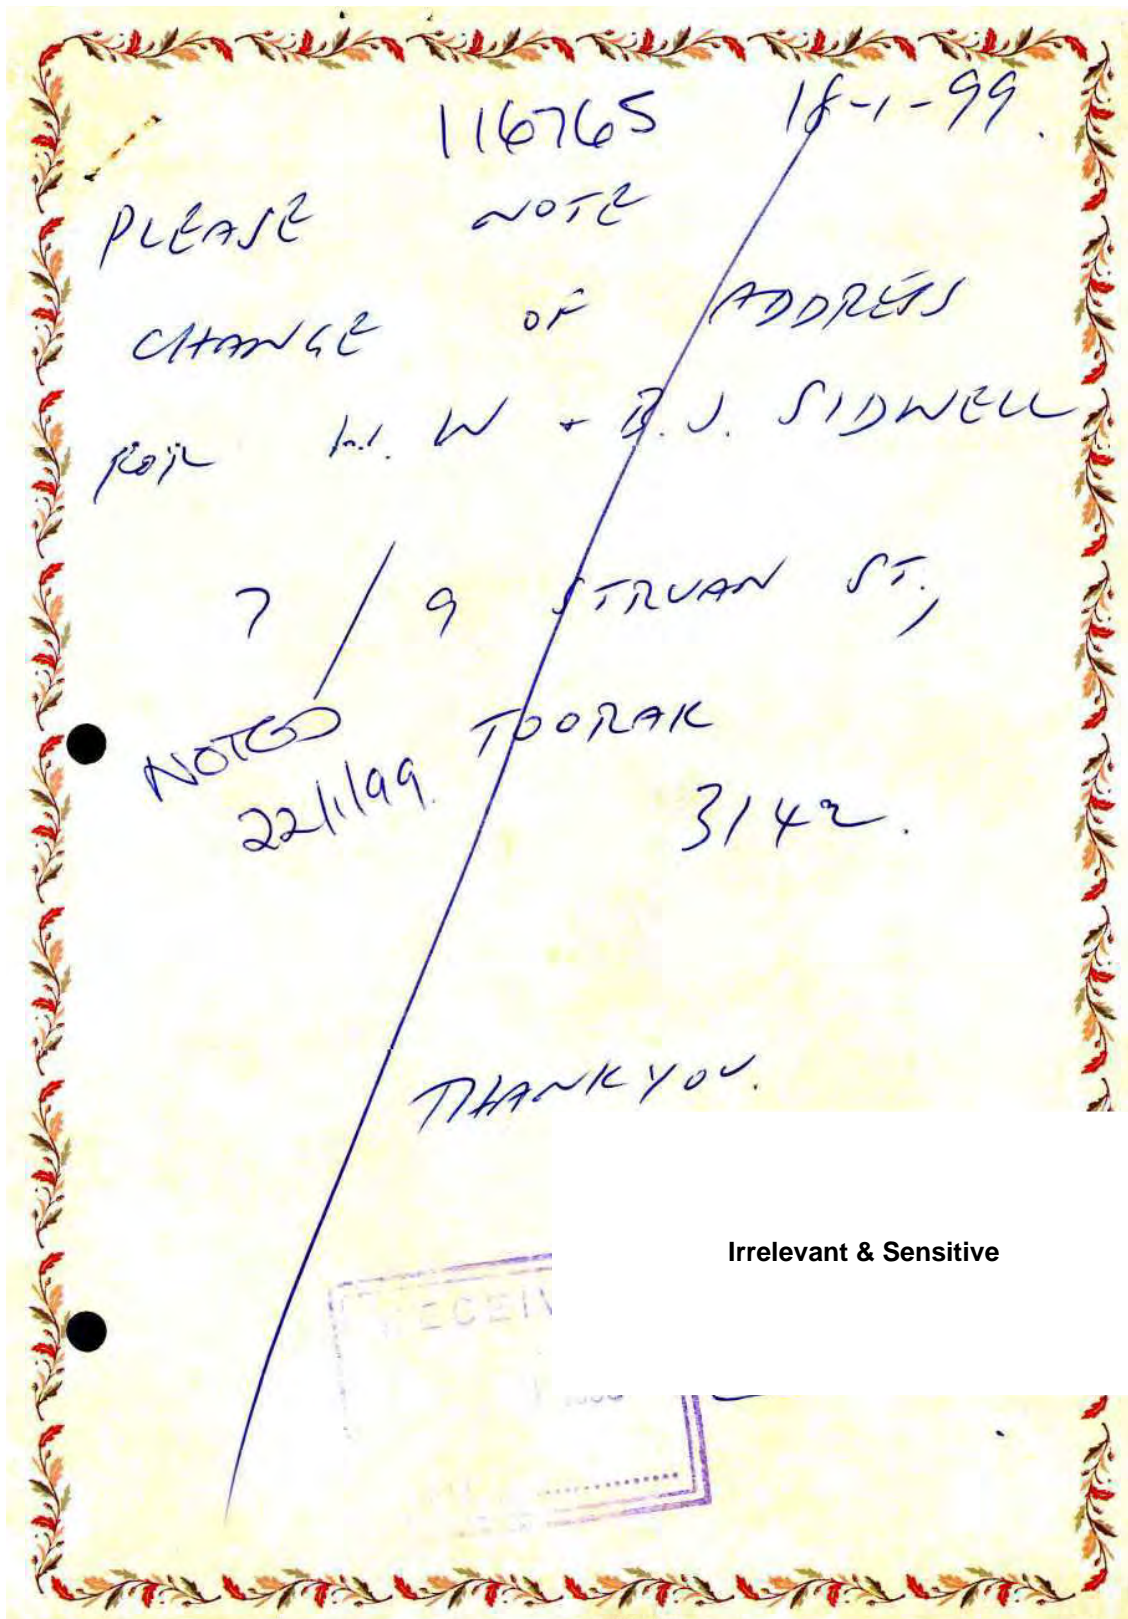 116765 18-1-99.
PLEASE NOTE
CHANGE OF ADDRESS
FOR W. W + B. J. SIDWELL
7/9 STRUAN ST.,
TOORAK
NOTED
22/1/99.
3142.
THANK YOU.
Irrelevant & Sensitive
RECEIV